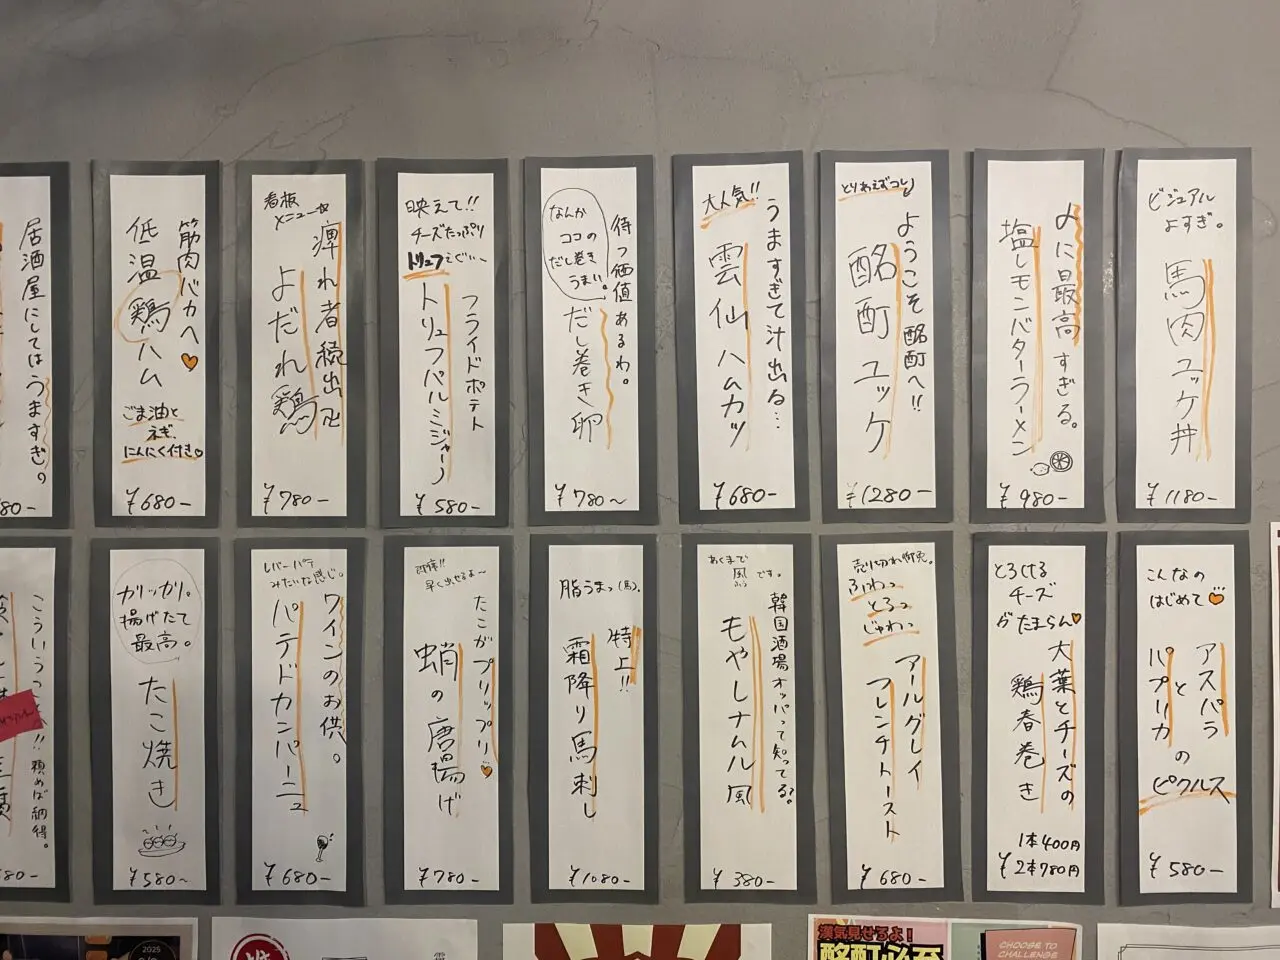 ビジュアル
よすぎ。
馬肉ユッケ丼
¥1180-
〆に最高すぎる。
塩レモンバターラーメン
¥980-
とりあえずコレ
ようこそ酩酊へ!!
酩酊ユッケ
¥1280-
うますぎて汁出る…
大人気!!
雲仙ハムカツ
¥680-
待つ価値あるわ。
なんか
ココの
だし巻き
うまい。
だし巻き卵
¥780~
映えて!!
チーズたっぷり
トリュフえぐぃ~
フライドポテト
トリュフパルミジャーノ
¥580-
看板
メニュー☆
痺れ者続出
よだれ鶏
¥780-
筋肉バカへ♥
低温鶏ハム
ごま油と
ネギ、
にんにく付き♡
¥680-
居酒屋にしてはうますぎ。
80-
こんなの
はじめて
アスパラ
と
パプリカ
の
ピクルス
¥580-
とろける
チーズ
がたまらん♥
大葉とチーズの
鶏春巻き
1本400円
¥2本780円
売り切れ御免。
ふわっ
とろっ
じゅわっ
アールグレイ
フレンチトースト
¥680-
あくまで
風です。
ふう
韓国酒場オッパって知ってる?
もやしナムル風
¥380-
脂うまっ(馬)。
特上!!
霜降り馬刺し
¥1080-
早く出せるよ~
たこがプリップリ♥
蛸の唐揚げ
¥780-
レバーパテ
みたいな感じ。
ワインのお供。
パテドカンパーニュ
¥680-
ガリッガリ。
揚げたて
最高。
たこ焼き
¥580~
こういうの
!!頼めば納得。
80-
2025
漢気見せるよ!
酩酊必至
CHOOSE TO
CHALLENGE